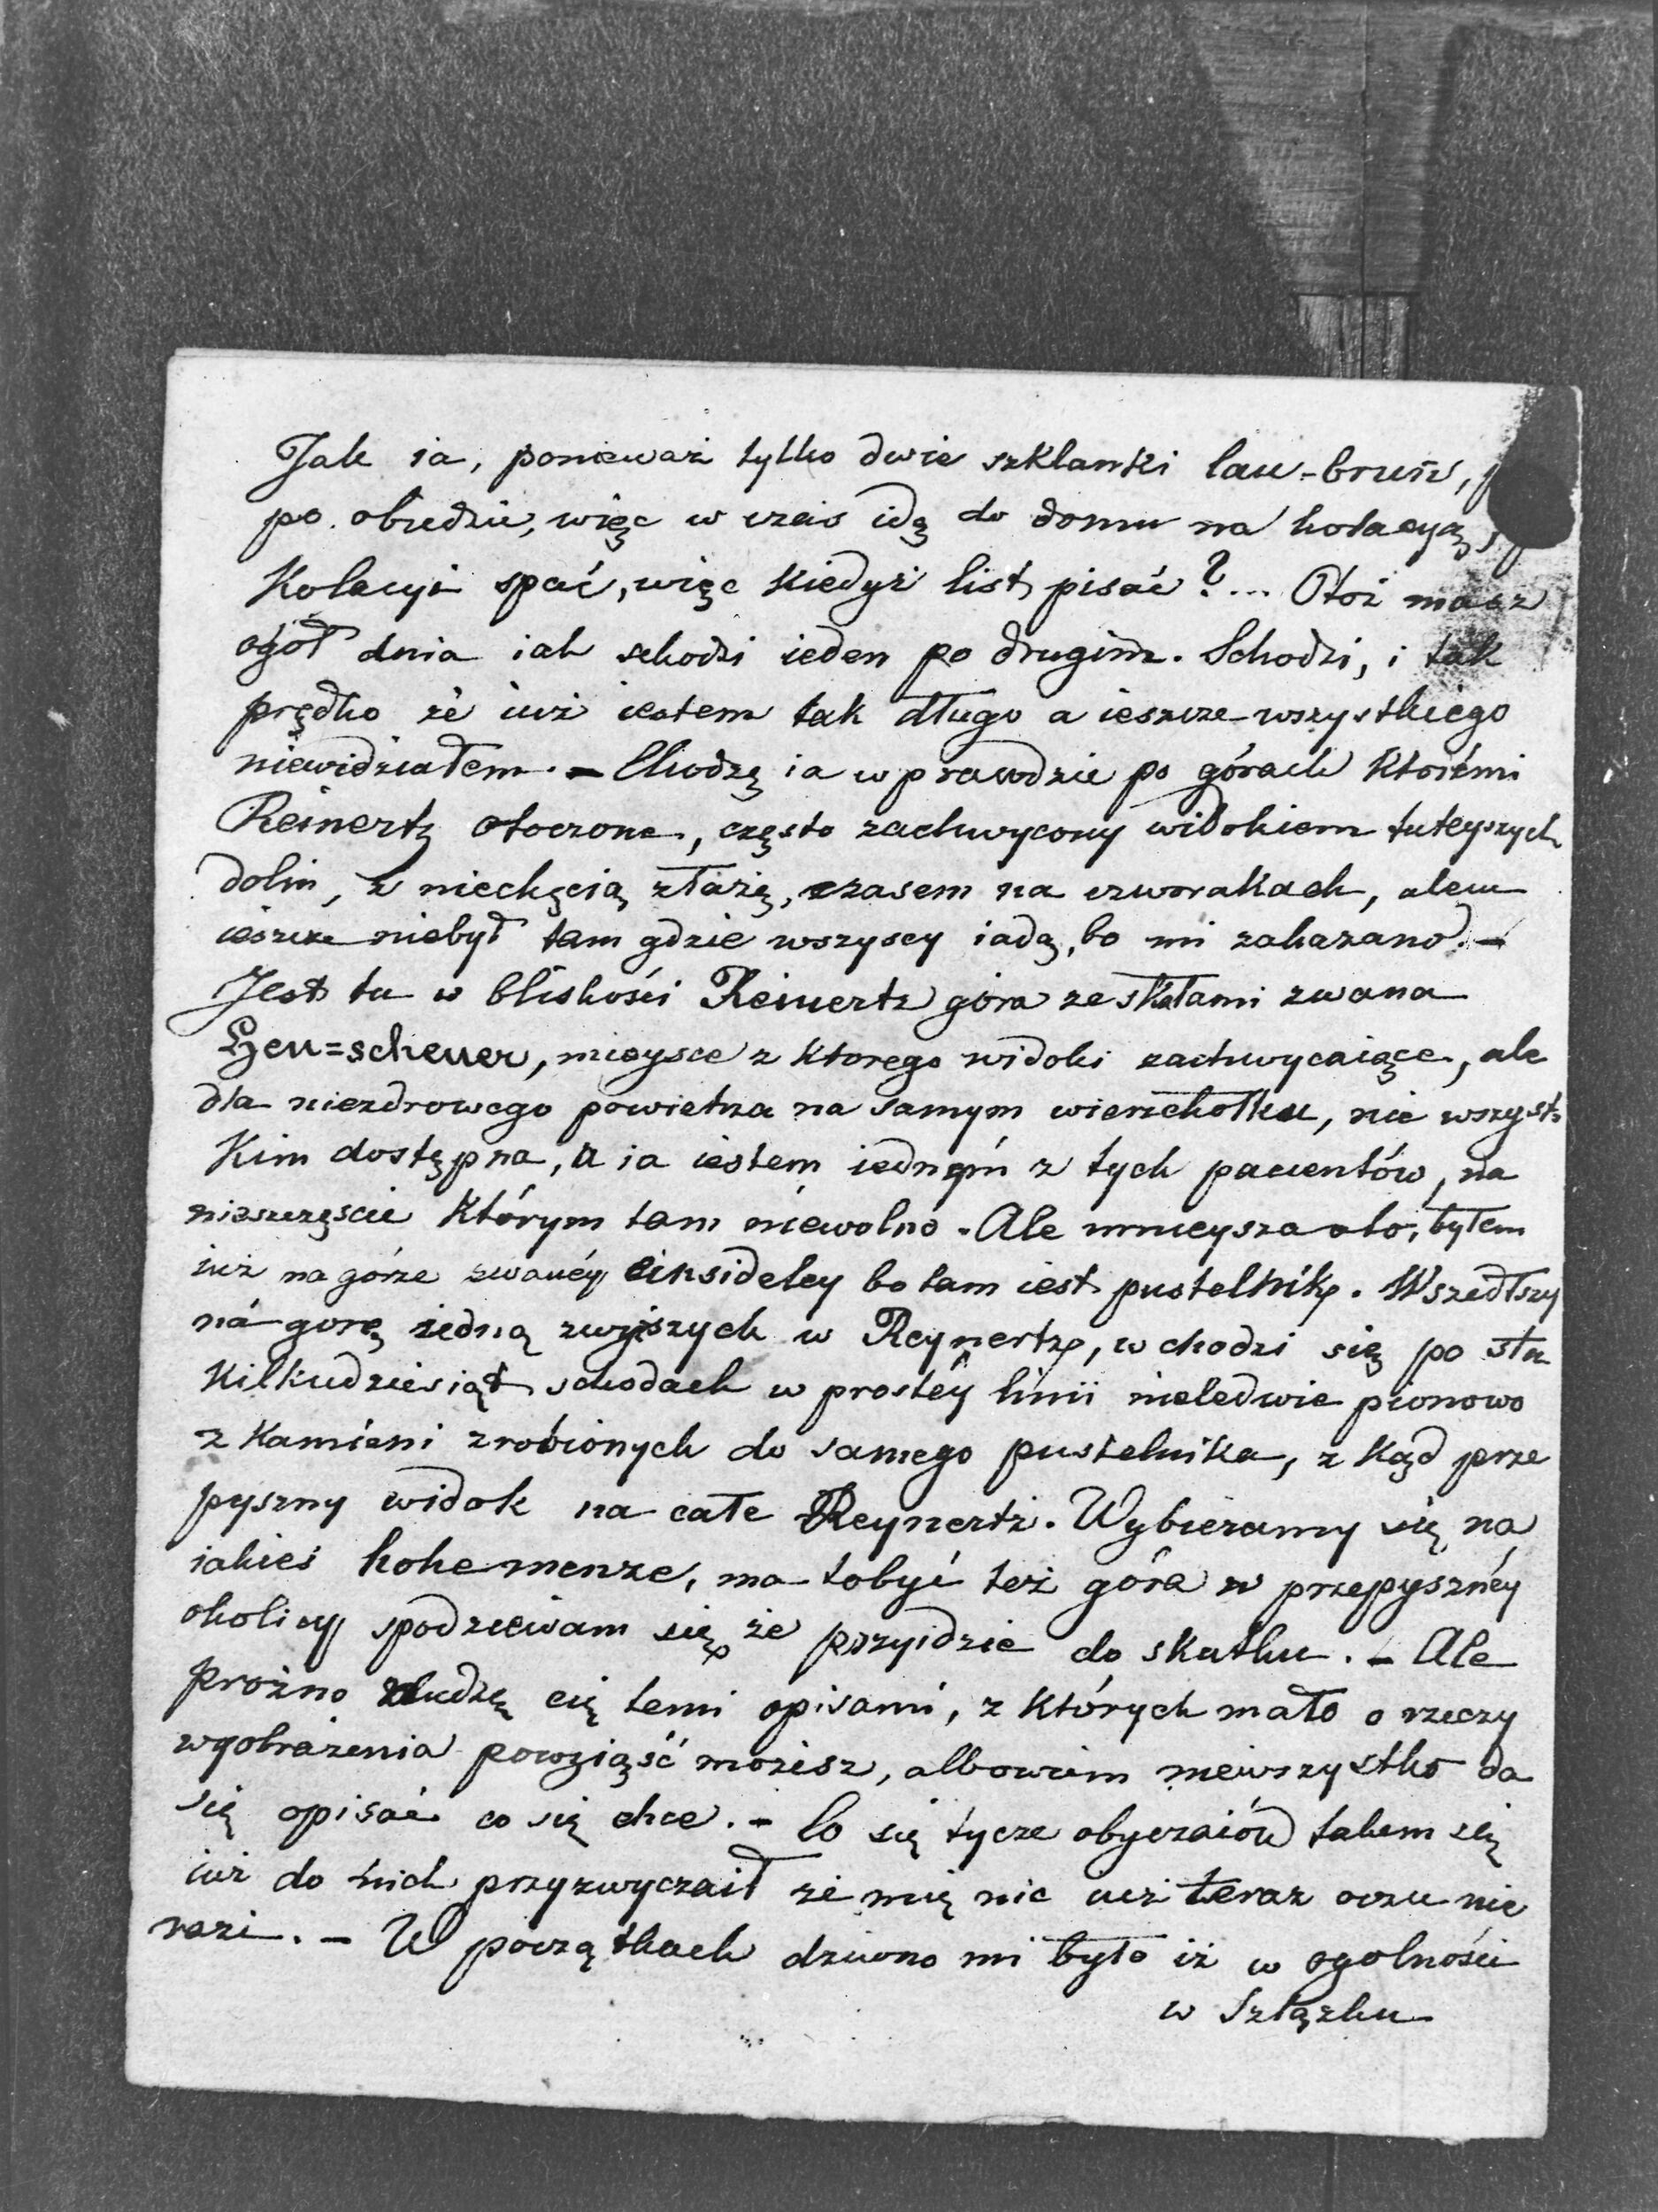 Jak ia, ponieważ tylko dwie szklanki lau-brun,
po obiedzie, więc w czas idę do domu na kolacyą,
Kolacyi spać, więc kiedyż list pisać?... Otóż masz
ogół dnia iak schodzi ieden po drugim. Schodzi, i tak
prędko że iuż iestem tak długo a ieszcze wszystkiego
niewidziałem. — Chodzę ia wprawdzie po górach któremi
Reinertz otoczone, często zachwycony widokiem tuteyszych
dolin, z niechęcią złażę, czasem na czworakach, alem
ieszcze niebył tam gdzie wszyscy iadą, bo mi zakazano. —
Jest tu w bliskości Reinertz góra ze skałami zwana
Heu=scheuer, mieysce z ktorego widoki zachwycaiące, ale
dla niezdrowego powietrza na samym wierzchołku, nie wszyst-
kim dostępna, a ia iestem iednym z tych pacientów, na
nieszczęscie którym tam niewolno. Ale mnieysza oto, byłem
iuż na górze zwanéy einsideley bo tam iest pustelnik. Wszedłszy
na gorę iedną zwyższych w Reynertz, wchodzi się po stu
kilkudziesiąt schodach w prostéy linii nieledwie pionowo
z kamieni zrobionych do samego pustelnika, z kąd prze
pyszny widok na całe Reynertz. Wybieramy się na
iakieś hohe menze, ma to być też góra w przepysznéy
okolicy spodziewam się że przyidzie do skutku. — Ale
prożno nudzę cię temi opisami, z których mało o rzeczy
wyobrażenia powziąść możesz, albowiem niewszystko da
się opisać co się chce. — Co się tycze obyczaiów takem się
iuż do nich przyzwyczaił że mię nic iuż teraz oczu nie
razi. — W początkach dziwno mi było iż w ogolności
w Szlązku